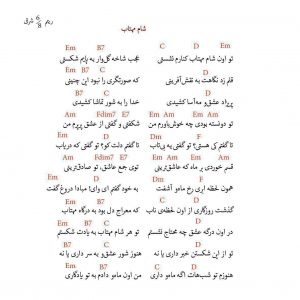 شام مهتاب
ریتم 6/8 شرقی
Em D C D Em B7 Em
تو اون شام مهتاب کنارم نشستی عجب شاخه گل‌وار به پایم شکستی
Em C B7 Em C B7
قلم زد نگاهت به نقش‌آفرینی که صورتگری را نبود این چنینی
Em D C D Em B7 Em
پریزاد عشق‌و مه‌آسا کشیدی خدا را به شور تماشا کشیدی
Am Em Am Fdim7 E7
تو دونسته بودی چه خوش‌باورم من شکفتی و گفتی از عشق پرپرم من
Dm F Dm E7 Am
تا گفتم کی هستی؟ تو گفتی یه بی‌تاب تا گفتم دلت کو؟ تو گفتی که دریاب
Em Am Fdim7 E7
قسم خوردی بر ماه که عاشق‌ترینی توی جمع عاشق، تو صادق‌ترینی
Am F D Em D
همون لحظه ابری رخ ماه‌و آشفت به خود گفتم ای وای! مبادا دروغ گفت
Em D C D Em B7 Em
گذشت روزگاری از اون لحظه‌ی ناب که معراج دل بود به درگاه مهتاب
C B7 Em C B7
در اون درگه عشق چه محتاج نشستم تو هر شام مهتاب به یادت شکستم
Em B7 Em
تو از این شکستن خبر داری یا نه هنوز شور عشق‌و به سر داری یا نه
هنوزم تو شب‌هات اگه ماه‌و داری من اون ماه‌و دادم به تو یادگاری